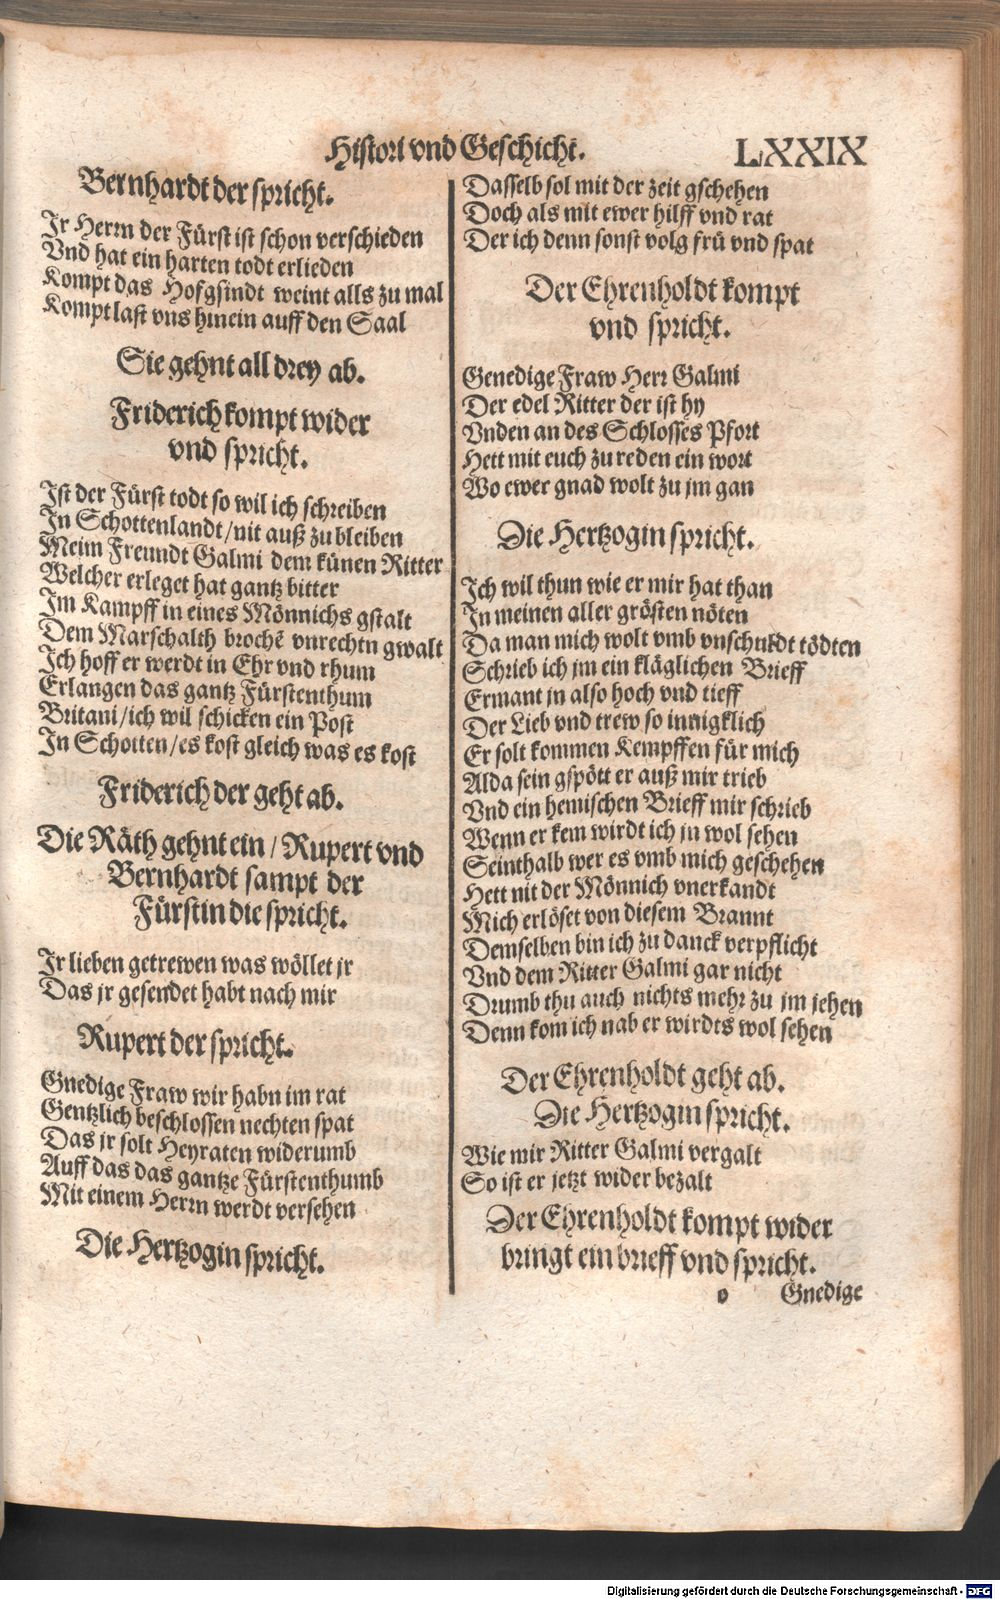 Histori vnd Geschicht. LXXIX
Bernhardt der spricht.
Jr Herrn der Fürst ist schon verschieden
Vnd hat ein harten todt erlieden
Kompt das Hofgsindt weint alls zu mal
Kompt last vns hinein auff den Saal
Sie gehnt all drey ab.
Friderich kompt wider
vnd spricht.
Ist der Fürst todt so wil ich schreiben
In Schottenlandt/nit auß zu bleiben
Meim Freundt Galmi dem künen Ritter
Welcher erleget hat gantz bitter
Im Kampff in eines Mönnichs gstalt
Dem Marschalth brochẽ vnrechtn gwalt
Ich hoff er werdt in Ehr vnd rhum
Erlangen das gantz Fürstenthum
Britani/ich wil schicken ein Post
In Schotten/es kost gleich was es kost
Friderich der geht ab.
Die Räth gehnt ein/Rupert vnd
Bernhardt sampt der
Fürstin die spricht.
Jr lieben getrewen was wöllet jr
Das jr gesendet habt nach mir
Rupert der spricht.
Gnedige Fraw wir habn im rat
Gentzlich beschlossen nechten spat
Das jr solt Heyraten widerumb
Auff das das gantze Fürstenthumb
Mit einem Herrn werdt versehen
Die Hertzogin spricht.
Dasselb sol mit der zeit gschehen
Doch als mit ewer hilff vnd rat
Der ich denn sonst volg frü vnd spat
Der Ehrenholdt kompt
vnd spricht.
Genedige Fraw Herr Galmi
Der edel Ritter der ist hy
Vnden an des Schlosses Pfort
Hett mit euch zu reden ein wort
Wo ewer gnad wolt zu jm gan
Die Hertzogin spricht.
Ich wil thun wie er mir hat than
In meinen aller grösten nöten
Da man mich wolt vmb vnschuldt tödten
Schrieb ich jm ein kläglichen Brieff
Ermant jn also hoch vnd tieff
Der Lieb vnd trew so innigklich
Er solt kommen Kempffen für mich
Alda sein gspött er auß mir trieb
Vnd ein hemischen Brieff mir schrieb
Wenn er kem wirdt ich jn wol sehen
Seinthalb wer es vmb mich geschehen
Hett nit der Mönnich vnerkandt
Mich erlöset von diesem Brannt
Demselben bin ich zu danck verpflicht
Vnd dem Ritter Galmi gar nicht
Drumb thu auch nichts mehr zu jm jehen
Denn kom ich nab er wirdts wol sehen
Der Ehrenholdt geht ab.
Die Hertzogin spricht.
Wie mir Ritter Galmi vergalt
So ist er jetzt wider bezalt
Der Ehrenholdt kompt wider
bringt ein brieff vnd spricht.
o Gnedige
Digitalisierung gefördert durch die Deutsche Forschungsgemeinschaft - DFG